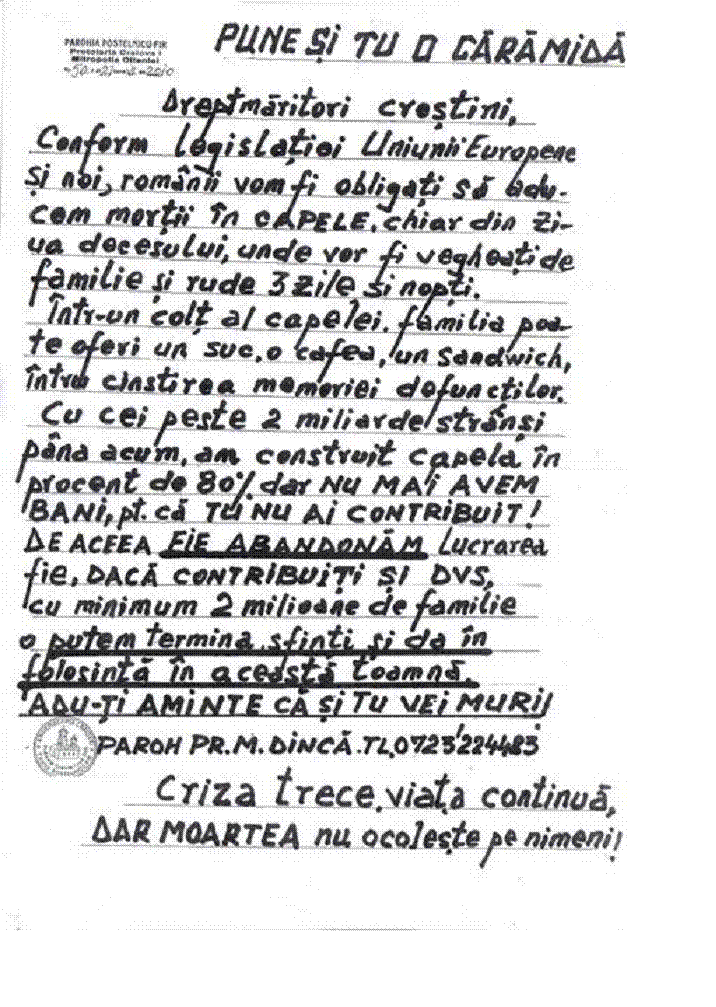 PUNE ȘI TU O CĂRĂMIDĂ
PAROHIA POSTELNICU FIR
Protoieria Craiova I
Mitropolia Olteniei
Dreptmăritori creștini,
Conform legislației Uniunii Europene
Și noi, românii vom fi obligați să adu-
cem morții în CAPELE, chiar din zi-
ua decesului, unde vor fi vegheați de
familie și rude 3 zile si nopți.
Într-un colț al capelei, familia poa-
te oferi un suc, o cafea, un sandwich,
întru cinstirea memoriei defuncților.
Cu cei peste 2 miliarde strânși
până acum, am construit capela în
procent de 80% dar NU MAI AVEM
BANI, pt. că TU NU AI CONTRIBUIT!
DE ACEEA FIE ABANDONĂM lucrarea
fie, DACĂ CONTRIBUIȚI ȘI DVS,
cu minimum 2 milioane de familie
o putem termina, sfinti și da în
folosință în această toamnă.
ADU-ȚI AMINTE CĂ ȘI TU VEI MURI!
PAROH PR. M. DINCĂ. TL. 0723/224483
Criza trece, viața continuă,
DAR MOARTEA nu ocolește pe nimeni!